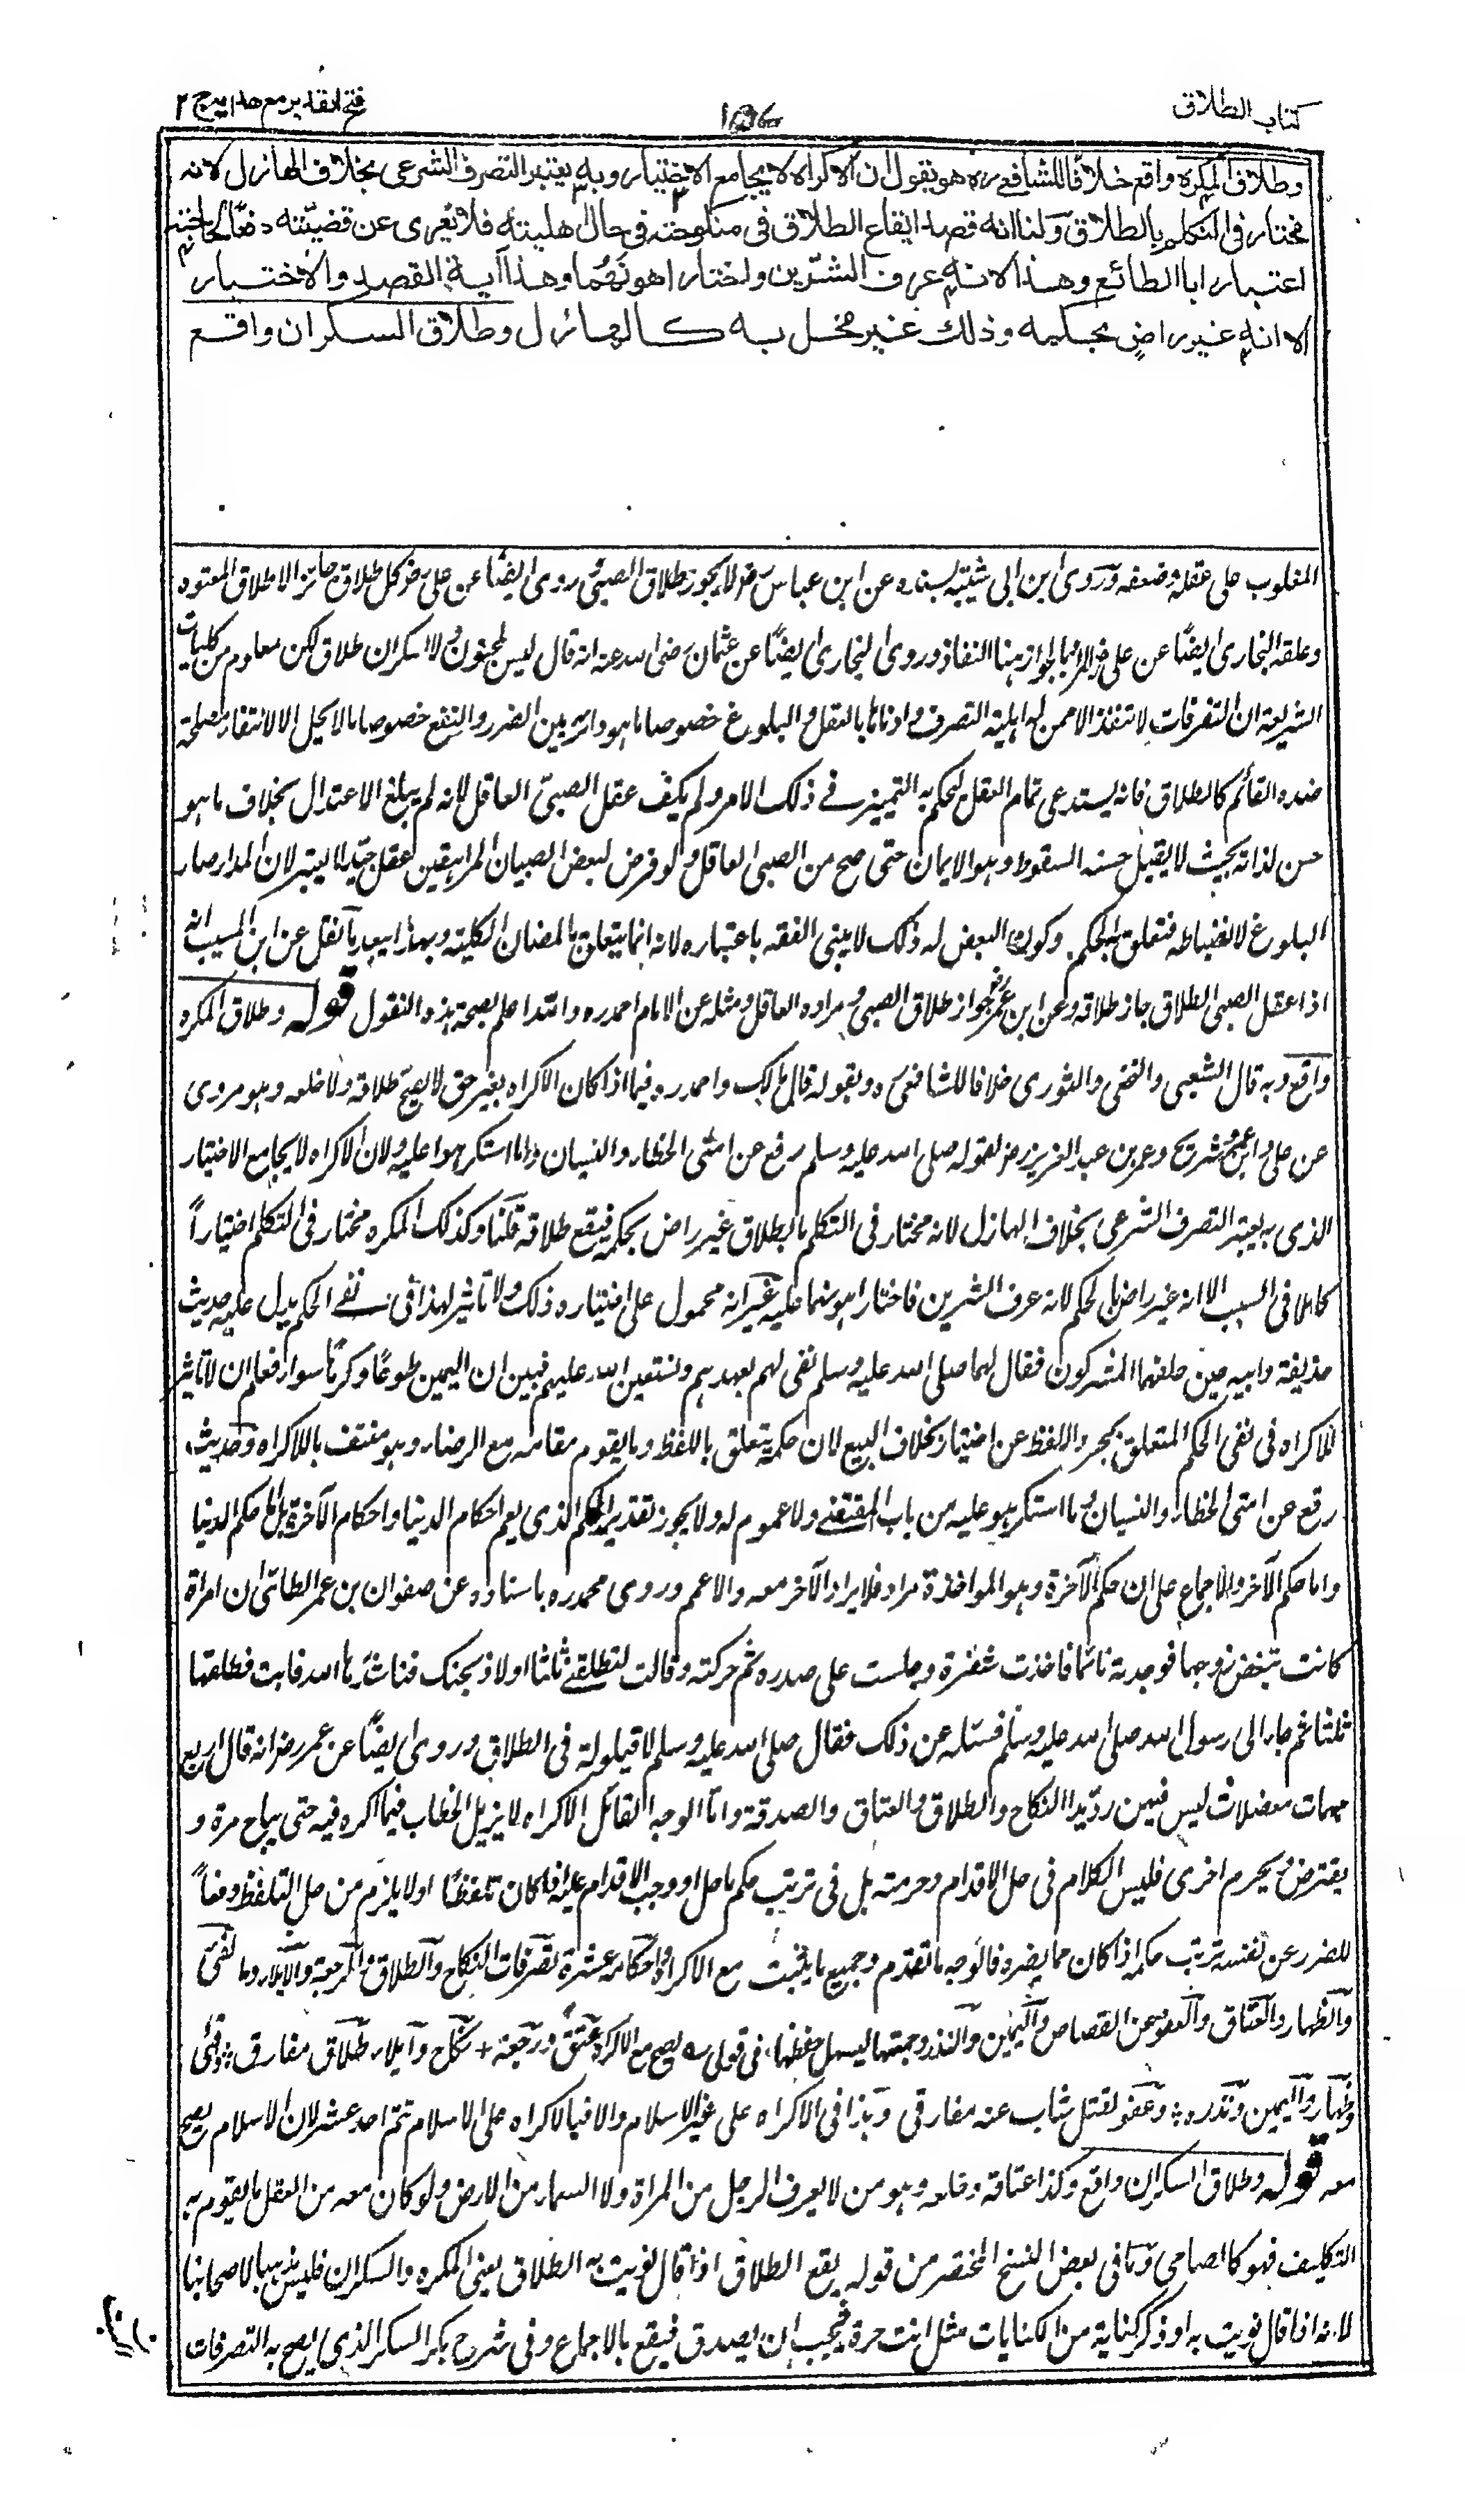 كتاب الطلاق
فتح القدير مع هدايه ج ٢
وطلاق المكره واقع خلافا للشافعي ره هو يقول ان الاكراه لا يجامع الاختيار وبه يعتبر التصرف الشرعى بخلاف الهازل لانه
مختار فى التكلم بالطلاق ولنا انه قصد ايقاع الطلاق فى منكوحته فى حال اهليته فلا يعرى عن قضيته دفعًا لحاجته
اعتبارا بالطائع وهذا لانه عرف الشرّين واختار اهونهما وهذا آية القصد والاختيار
الا انه غير راضٍ بحكمه وذلك غير مخل به كالهازل وطلاق السكران واقع
المغلوب على عقله وضعفه وروى ابن ابى شيبة بسنده عن ابن عباس رض لا يجوز طلاق الصبى وروى ايضًا عن على رض كل طلاق جائز الا طلاق المعتوه
وعلقه البخارى ايضًا عن على رض والمراد بالجواز هنا النفاذ وروى البخارى ايضًا عن عثمان رضى الله عنه انه قال ليس لمجنون ولا لسكران طلاق لكن معلوم من كليات
الشريعة ان التصرفات لا تنفذ الا ممن له اهلية التصرف وادناها بالعقل والبلوغ خصوصا ما هو دائر بين الضرر والنفع خصوصا ما لا يحل الا لانتفاء مصلحة
ضده القائم كالطلاق فانه يستدعى تمام العقل ليحكم به التمييز فى ذلك الامر ولم يكف عقل الصبىّ العاقل لانه لم يبلغ الاعتدال بخلاف ما هو
حسن لذاته بحيث لا يقبل حسنه السقوط وهو الايمان حتى صح من الصبى العاقل ولو فرض لبعض الصبيان المراهقين عقل جيّد لا يعتبر لان المدار صار
البلوغ لانضباطه فتعلق به الحكم وكون البعض له ذلك لا يبنى الفقه باعتباره لانه انما يتعلق بالمضان الكلية وبهذا يبعد ما نقل عن ابن المسيب انه
اذا عقل الصبى الطلاق جاز طلاقه وعن ابن عمر رض جواز طلاق الصبى ومراده العاقل ومثله عن الامام احمد ره والله اعلم بصحة هذه النقول قوله وطلاق المكره
واقع وبه قال الشعبى والنخعى والثورى خلافا للشافعى ره وبقوله قال مالك واحمد ره فيما اذا كان الاكراه بغير حق لا يصح طلاقه ولا خلعه وهو مروى
عن على وابن عمر وشريح وعمر بن عبد العزيز رض لقوله صلى الله عليه وسلم رفع عن امتى الخطاء والنسيان وما استكرهوا عليه ولان الاكراه لا يجامع الاختيار
الذى به يعتبر التصرف الشرعى بخلاف الهازل لانه مختار فى التكلم بالطلاق غير راض بحكمه فيقع طلاقه قلنا وكذلك المكره مختار فى التكلم اختيارًا
كاملا فى السبب الا انه غير راض بالحكم لانه عرف الشرين فاختار اهونهما عليه غير انه محمول على اختياره ذلك ولا تاثير لهذا فى نفى الحكم يدل عليه حديث
حذيفة وابيه حين حلفهما المشركون فقال لهما صلى الله عليه وسلم نفى لهم بعهدهم ونستعين الله عليهم فبين ان اليمين طوعًا وكرهًا سواء فعلم ان لا تاثير
للاكراه فى نفى الحكم المتعلق بمجرد اللفظ عن اختيار بخلاف البيع لان حكمه يتعلق باللفظ وما يقوم مقامه مع الرضاء وهو منتف بالاكراه وحديث
رفع عن امتى الخطاء والنسيان وما استكرهو عليه من باب المقتضى ولا عموم له ولا يجوز تقدير الحكم الذى يعم احكام الدنيا واحكام الآخرة بل اما حكم الدنيا
واما حكم الآخرة والاجماع على ان حكم الآخرة وهو المواخذة مراد فلا يراد الآخر معه والا عمم وروى محمد ره باسناده عن صفوان بن عمر الطائى ان امراة
كانت تبغض زوجها فوجدته نائما فاخذت شفرة وجلست على صدره ثم حركته وقالت لتطلقنى ثلثا او لاذبحنك فناشدها الله فابت فطلقها
ثلثا ثم جاء الى رسول الله صلى الله عليه وسلم فسئله عن ذلك فقال صلى الله عليه وسلم لا قيلولة فى الطلاق وروى ايضًا عن عمر رض انه قال اربع
مبهمات معضلات ليس فيهن ردّيد النكاح والطلاق والعتاق والصدقة واما الوجه القائل الاكراه لا يزيل الخطاب فيما اكره فيه حتى يباح مرة و
يفترض ويحرم اخرى فليس الكلام فى حل الاقدام وحرمته بل فى ترتب حكم ما حل او وجب الاقدام عليه اذا كان تلفظا اولا يلزم من حل التلفظ دفعًا
للضرر عن نفسه ترتب حكمه اذا كان مما يضره فالوجه ما تقدم وجميع ما يثبت مع الاكراه احكامه عشرة تصرفات النكاح والطلاق والرجعة والايلاء والفى
والظهار والعتاق والعفو عن القصاص واليمين والنذر وجمعتها ليسهل حفظها فى قولى ـه يصح مع الاكراه عتق ورجعة + نكاح وايلاء طلاق مفارق ؛ وفئ
وظهار واليمين ونذره ؛ وعفو لقتل شاب عنه مفارقى وهذا فى الاكراه على غير الاسلام والا فبالاكراه على الاسلام تتم احد عشر لان الاسلام يصح
معه قوله وطلاق السكران واقع وكذا عتاقه وخلعه وهو من لا يعرف الرجل من المراة ولا السماء من الارض ولو كان معه من العقل ما يقوم به
التكليف فهو كالصاحى وما فى بعض النسخ المختصر من قوله يقع الطلاق اذا قال نويت به الطلاق يعنى المكره والسكران فليس مذهبا لاصحابنا
لانه اذا قال نويت به او ذكر كناية من الكنايات مثل انت حرة فيجب ان يصدق فيقع بالاجماع وفى شرح بكر السكر الذى يصح به التصرفات